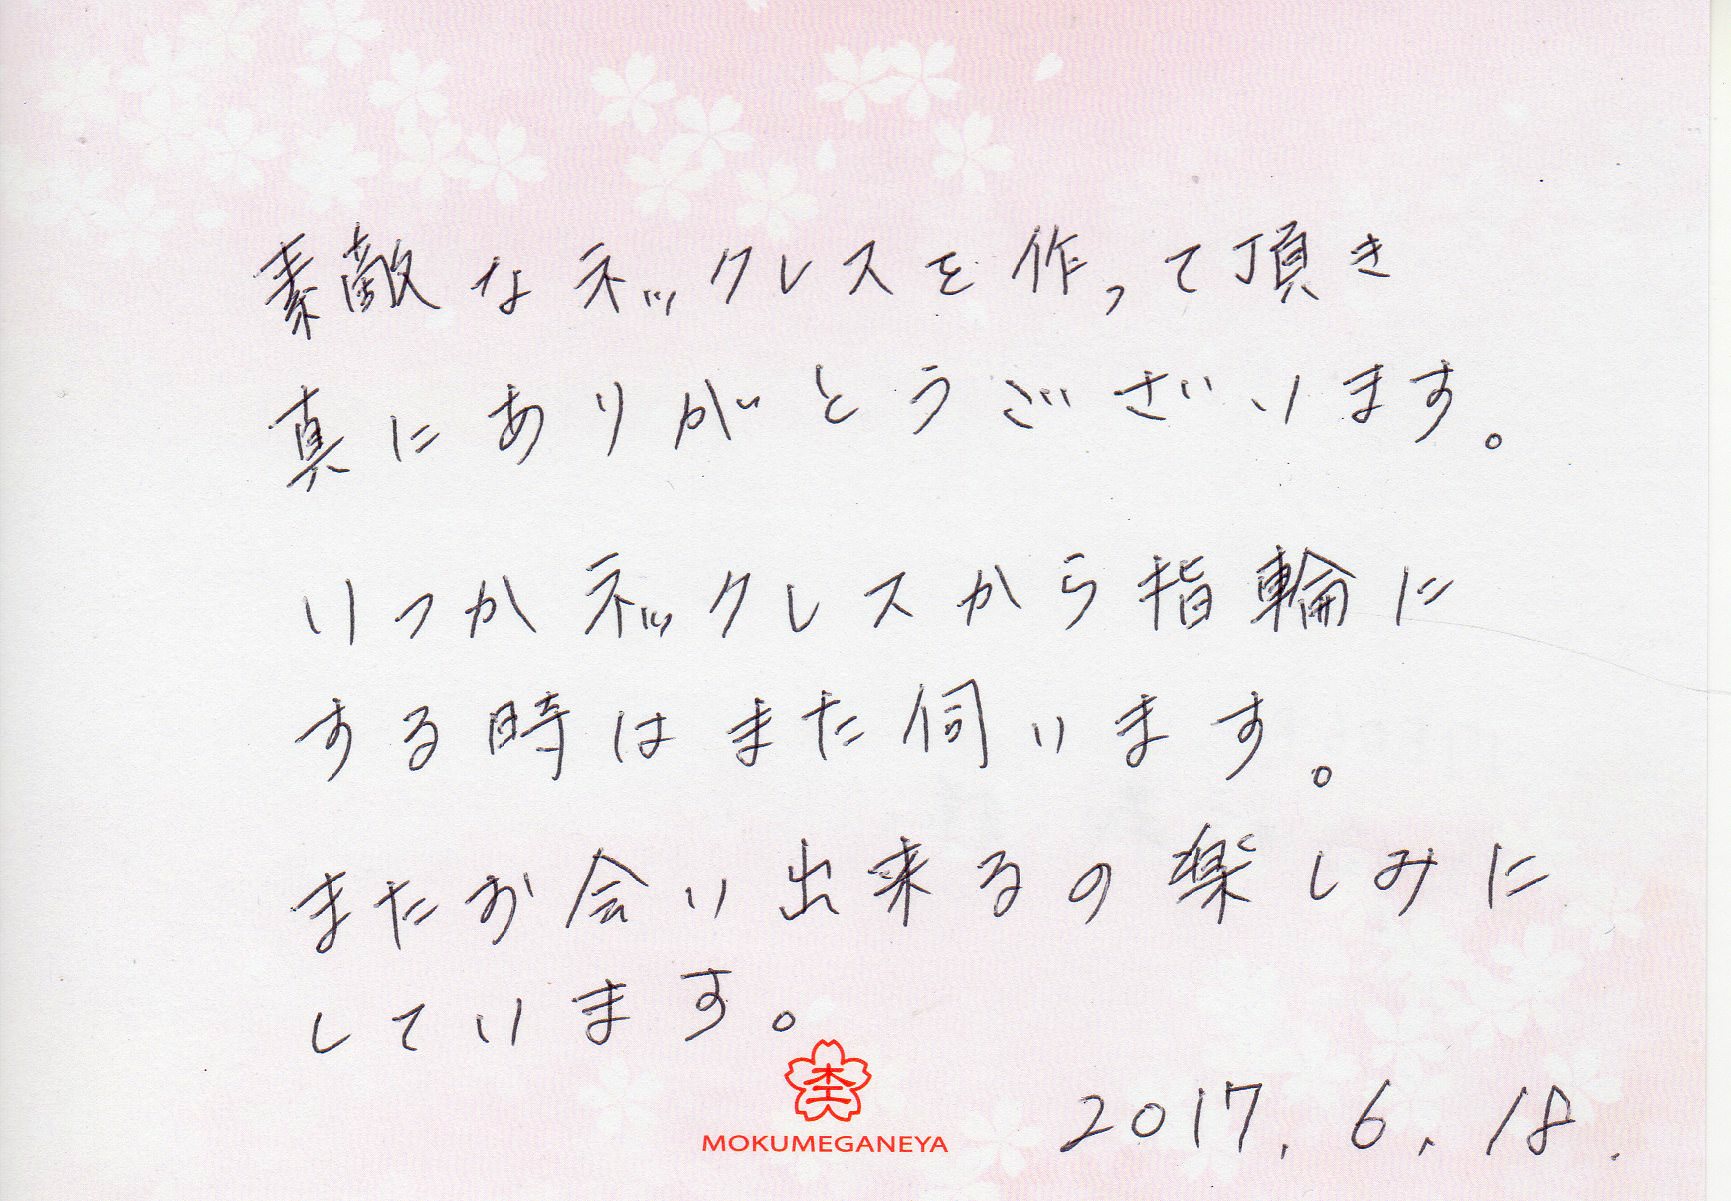 素敵なネックレスを作って頂き
真にありがとうございます。
いつかネックレスから指輪に
する時はまた伺います。
またお会い出来るの楽しみに
しています。
MOKUMEGANEYA
2017.6.18.